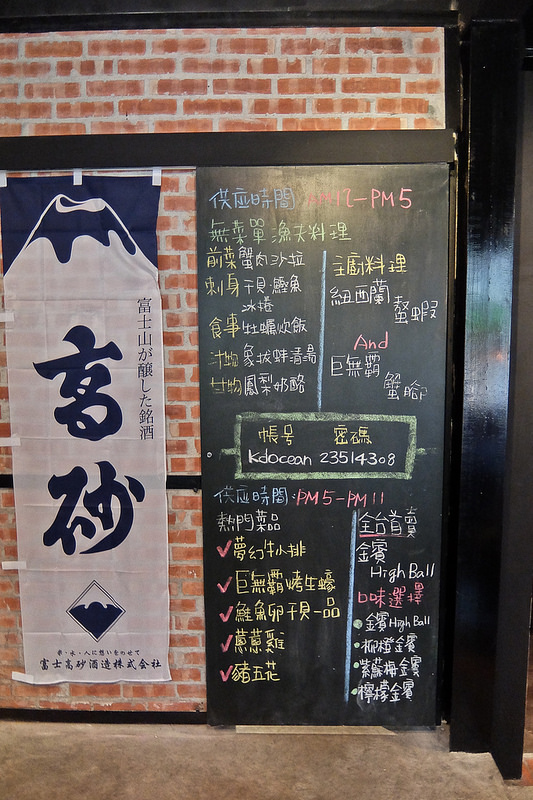 富士山が醸した銘酒
高砂
米・水・人に想いをのせて
富士高砂酒造株式会社
供应時間 AM12-PM5
無菜單漁夫料理
前菜 蟹肉沙拉
刺身 干貝.鰹魚
冰捲
食事 牡蠣炊飯
汁物 象拔蚌清湯
甘物 鳳梨奶酪
主廚料理
紐西蘭
螯蝦
And
巨無霸
蟹腳
帳号 密碼
kdocean 23514308
供应時間:PM5-PM11
熱門菜品
夢幻牛小排
巨無霸烤生蠔
鮭魚卵干貝一品
蔥蔥雞
豬五花
全台首賣
金賓
High Ball
口味選擇
金賓High Ball
柳橙金賓
紫蘇梅金賓
檸檬金賓